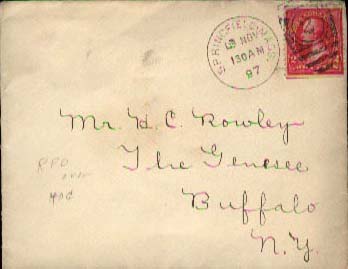 SPRINGFIELD, MASS.
NOV
130 AM
97
Mr. H. C. Rowley
The Genesee
Buffalo
N.Y.
RPO
over
40¢